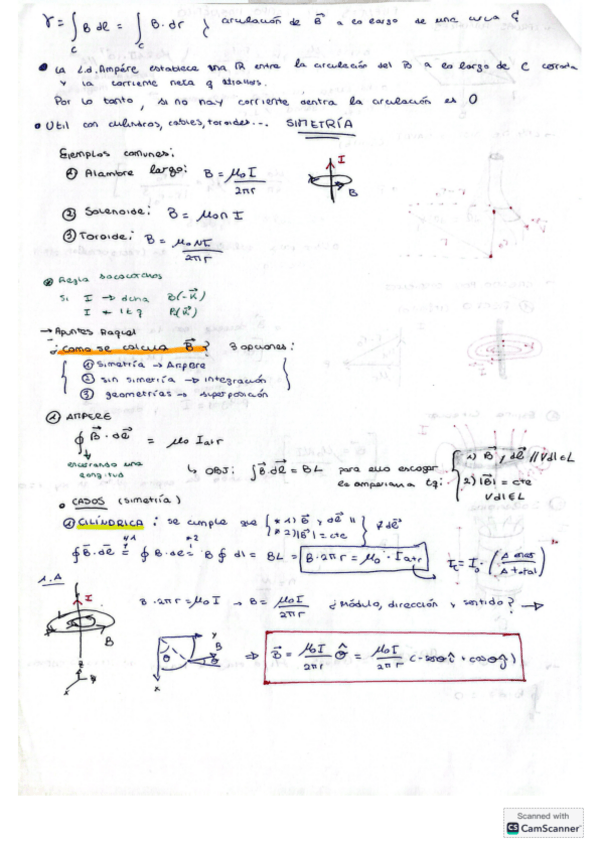 γ = ∫_C B dl = ∫_C B · dr } circulación de B⃗ a lo largo de una curva C
• La L.d. Ampère establece una R entre la circulación del B a lo largo de C cerrada
y la corriente neta q atraves.
Por lo tanto, si no hay corriente dentro la circulación es 0
• Util con cilindros, cables, toroides... SIMETRÍA
Ejemplos comunes:
① Alambre largo: B = μ₀ I / 2πr
I
B
② Solenoide: B = μ₀ n I
③ Toroide: B = μ₀ N I / 2πr
Regla sacacorchos
Si I → dcha B(-k⃗)
I ← izq B(k⃗)
→ Apuntes Raquel
¿Como se calcula B⃗? 3 opciones:
① simetría → Ampere
② sin simetría → integración
③ geometrías → superposición
① AMPERE
∮ B⃗ · dl⃗ = μ₀ I atr
↳ OBJ: ∫ B⃗ · dl⃗ = BL para ello escoger
la amperiana tq:
1) B⃗, dl⃗ // ∀ dl ∈ L
2) |B⃗| = cte
∀ dl ∈ L
• CASOS (simetría)
① CILÍNDRICA: se cumple que { * 1) B⃗ y dl⃗ //
* 2) |B⃗| = cte } ∀ dl⃗
∮ B⃗ · dl⃗ = ∮ B · dl = B ∮ dl = BL = B · 2πr = μ₀ · I atr
*1 *2
1.A
I
B
B · 2πr = μ₀ I → B = μ₀ I / 2πr ¿Módulo, dirección y sentido? →
y
B
θ
x
⇒ B⃗ = μ₀ I / 2πr θ̂ = μ₀ I / 2πr (-senθ î + cosθ ĵ)
z
y
x
Scanned with
CS CamScanner